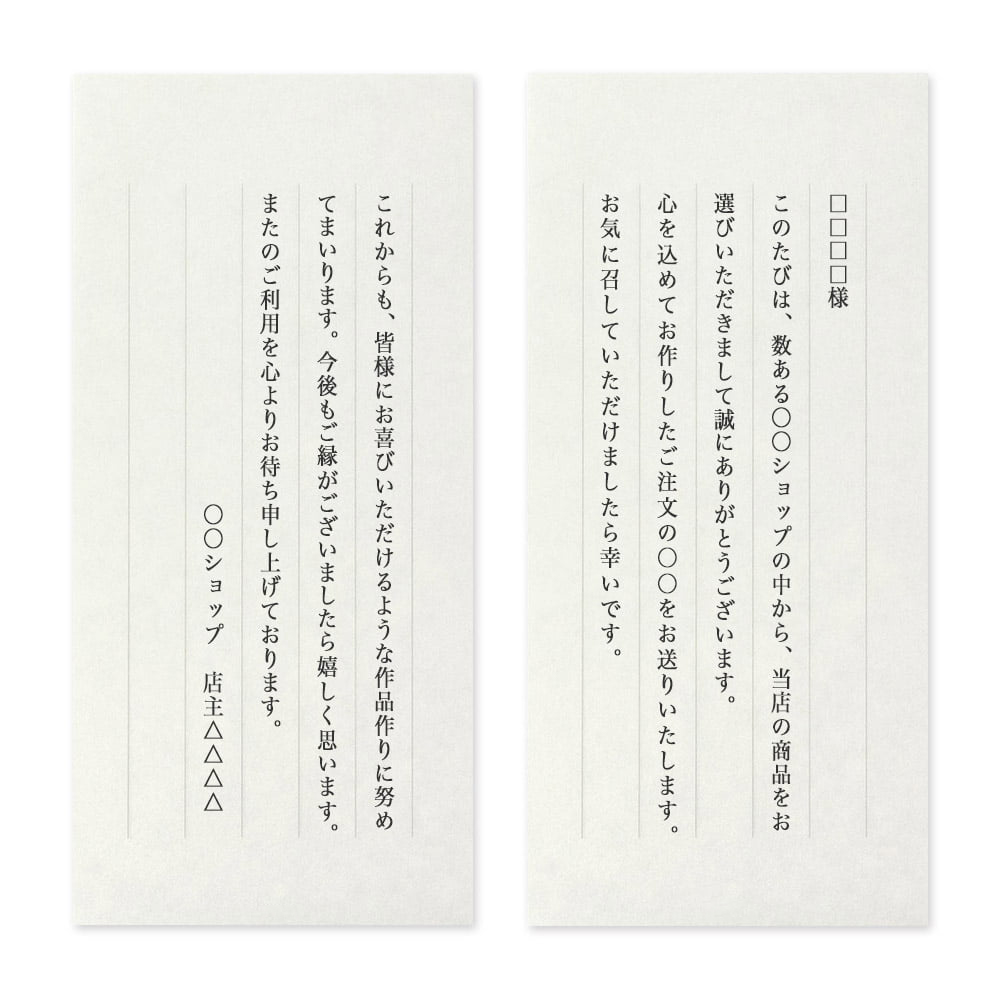 □□□□様
このたびは、数ある〇〇ショップの中から、当店の商品をお
選びいただきまして誠にありがとうございます。
心を込めてお作りしたご注文の〇〇をお送りいたします。
お気に召していただけましたら幸いです。
これからも、皆様にお喜びいただけるような作品作りに努め
てまいります。今後もご縁がございましたら嬉しく思います。
またのご利用を心よりお待ち申し上げております。
〇〇ショップ　店主△△△△